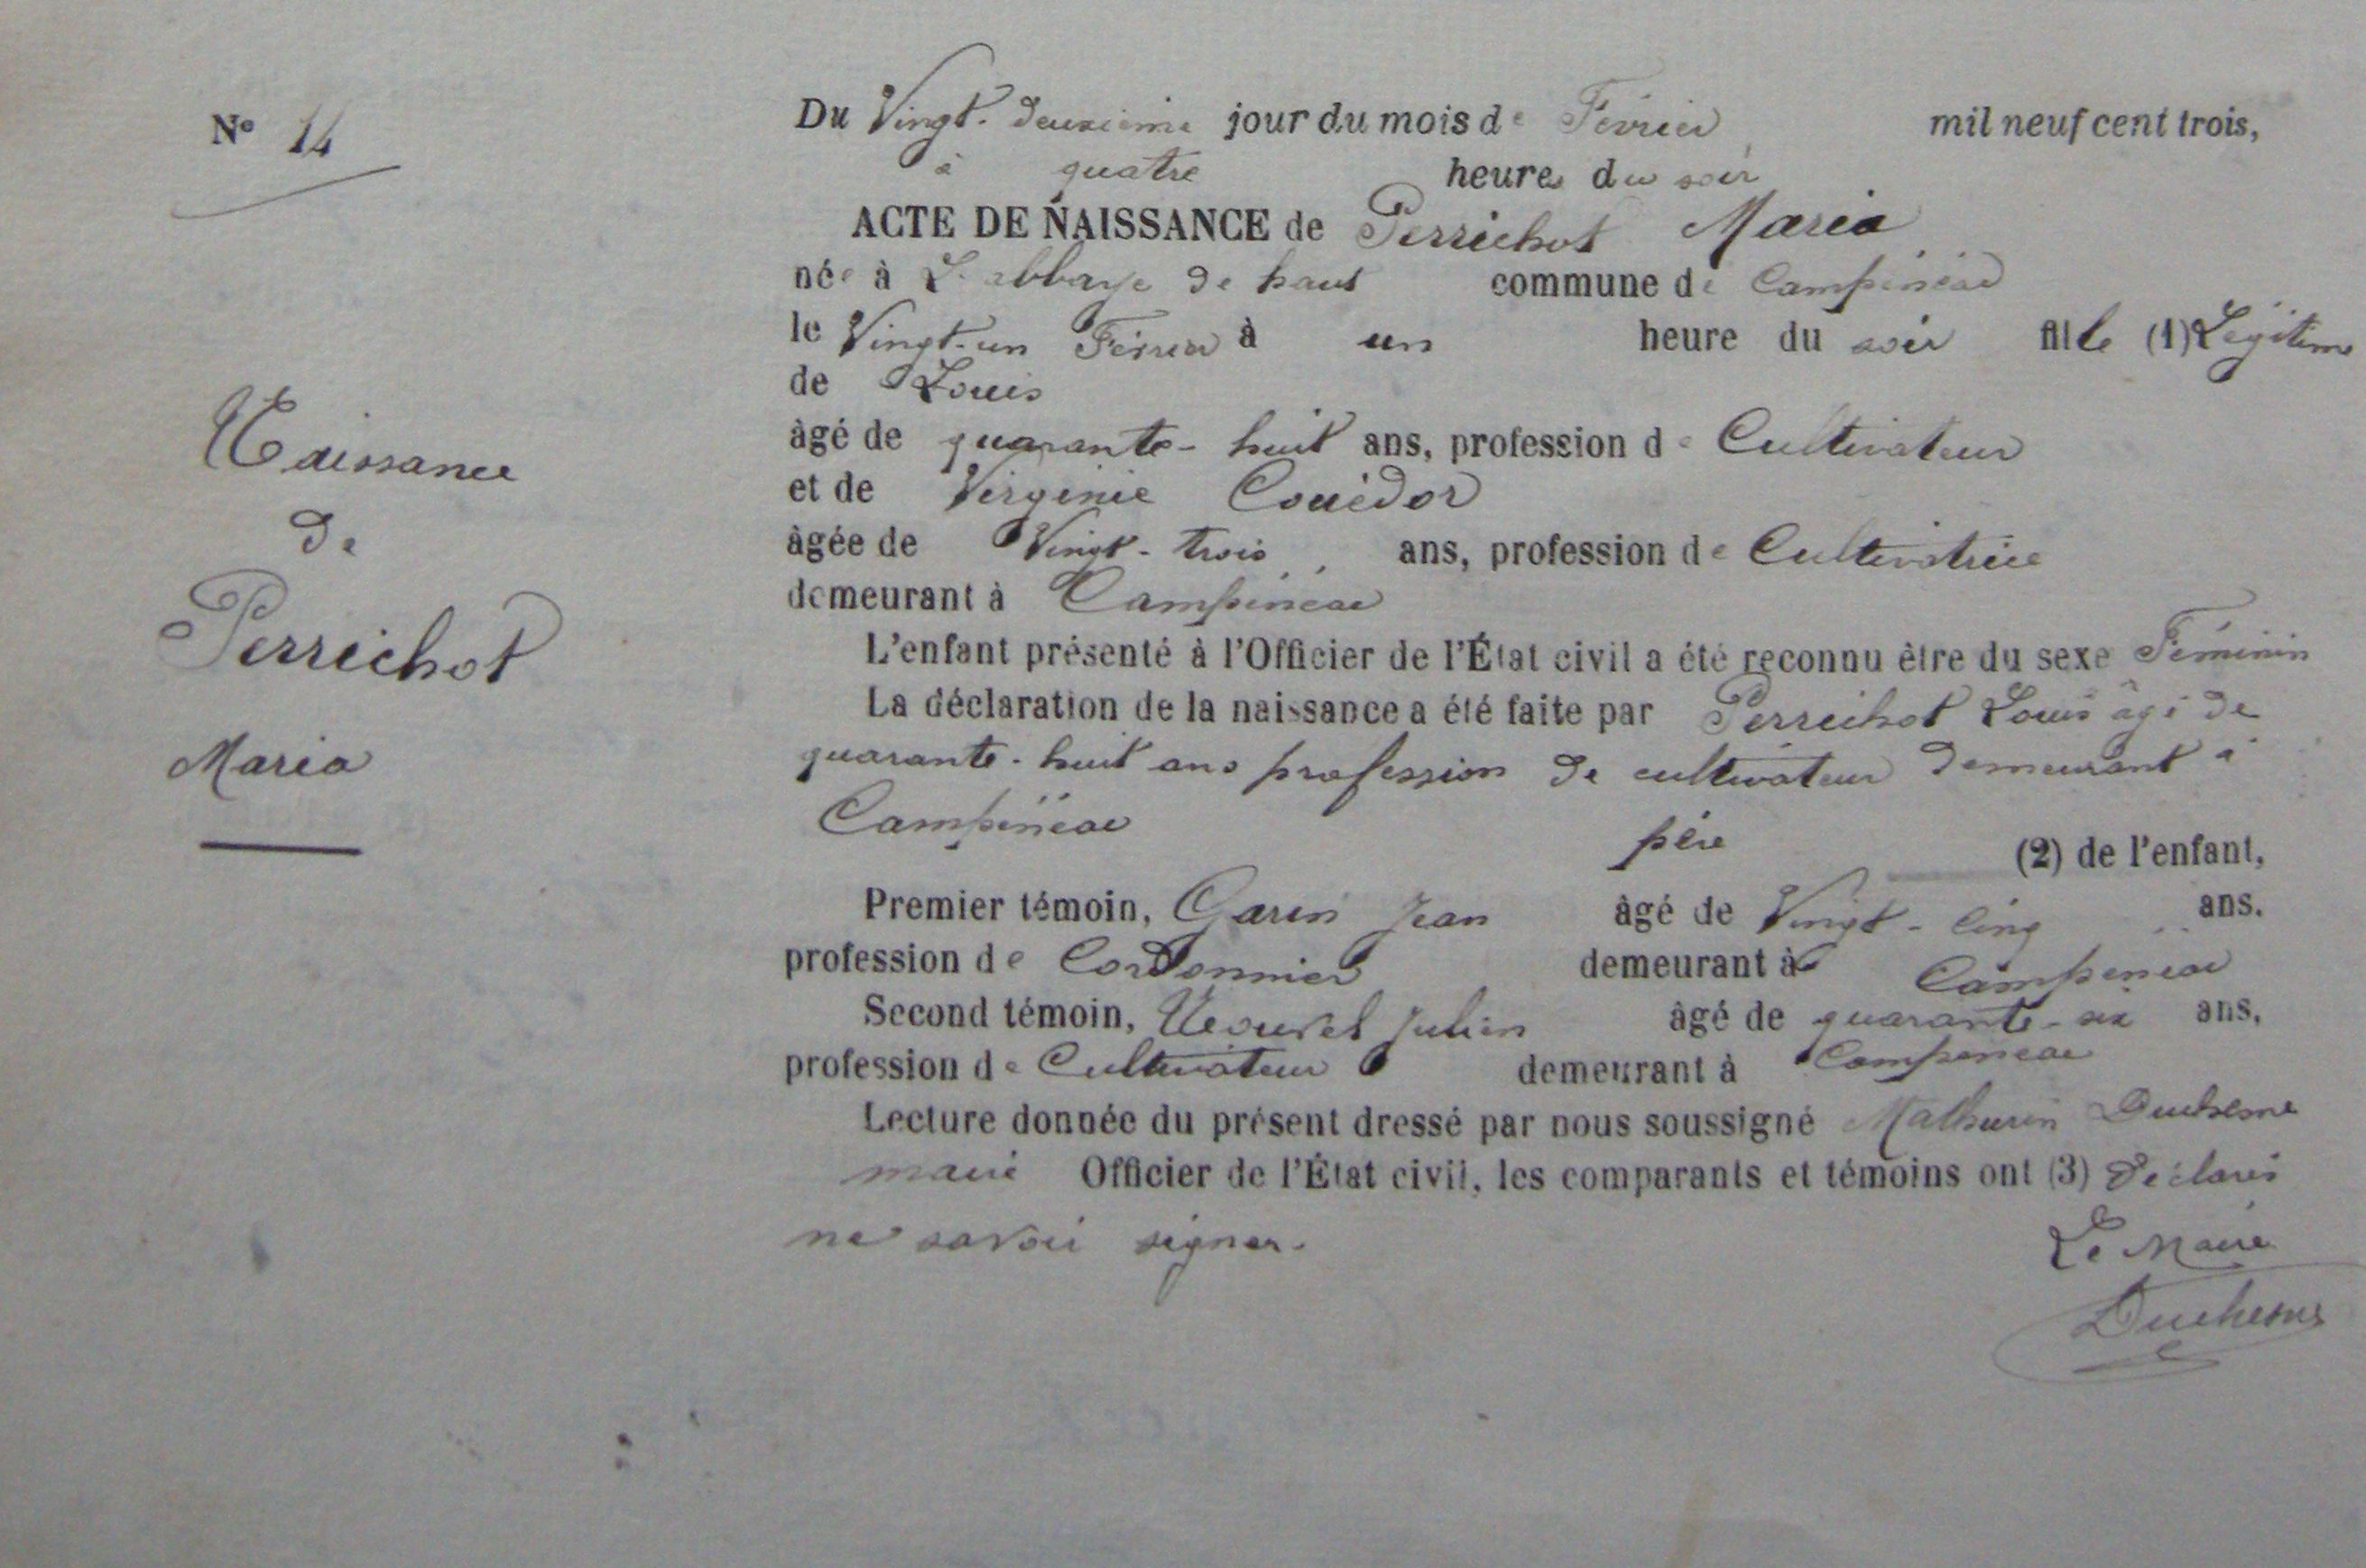 N° 14
Naissance
de
Perrichot
Maria
Du Vingt-deuxième jour du mois de Février mil neuf cent trois,
à quatre heures du soir
ACTE DE NAISSANCE de Perrichot Maria
née à L'abbaye de haut commune de Campénéac
le Vingt-un Février à un heure du soir fille (1) Légitime
de Louis
âgé de quarante-huit ans, profession de Cultivateur
et de Virginie Couëdor
âgée de Vingt-trois ans, profession de Cultivatrice
demeurant à Campénéac
L'enfant présenté à l'Officier de l'État civil a été reconnu être du sexe Féminin
La déclaration de la naissance a été faite par Perrichot Louis âgé de
quarante-huit ans profession de cultivateur demeurant à
Campénéac père (2) de l'enfant,
Premier témoin, Garin Jean âgé de Vingt-cinq ans.
profession de Cordonnier demeurant à Campénéac
Second témoin, Julien âgé de quarante-six ans,
profession de Cultivateur demeurant à Campénéac
Lecture donnée du présent dressé par nous soussigné Mathurin Duchesne
maire Officier de l'État civil, les comparants et témoins ont (3) déclarés
ne savoir signer.
Le Maire
Duchesne